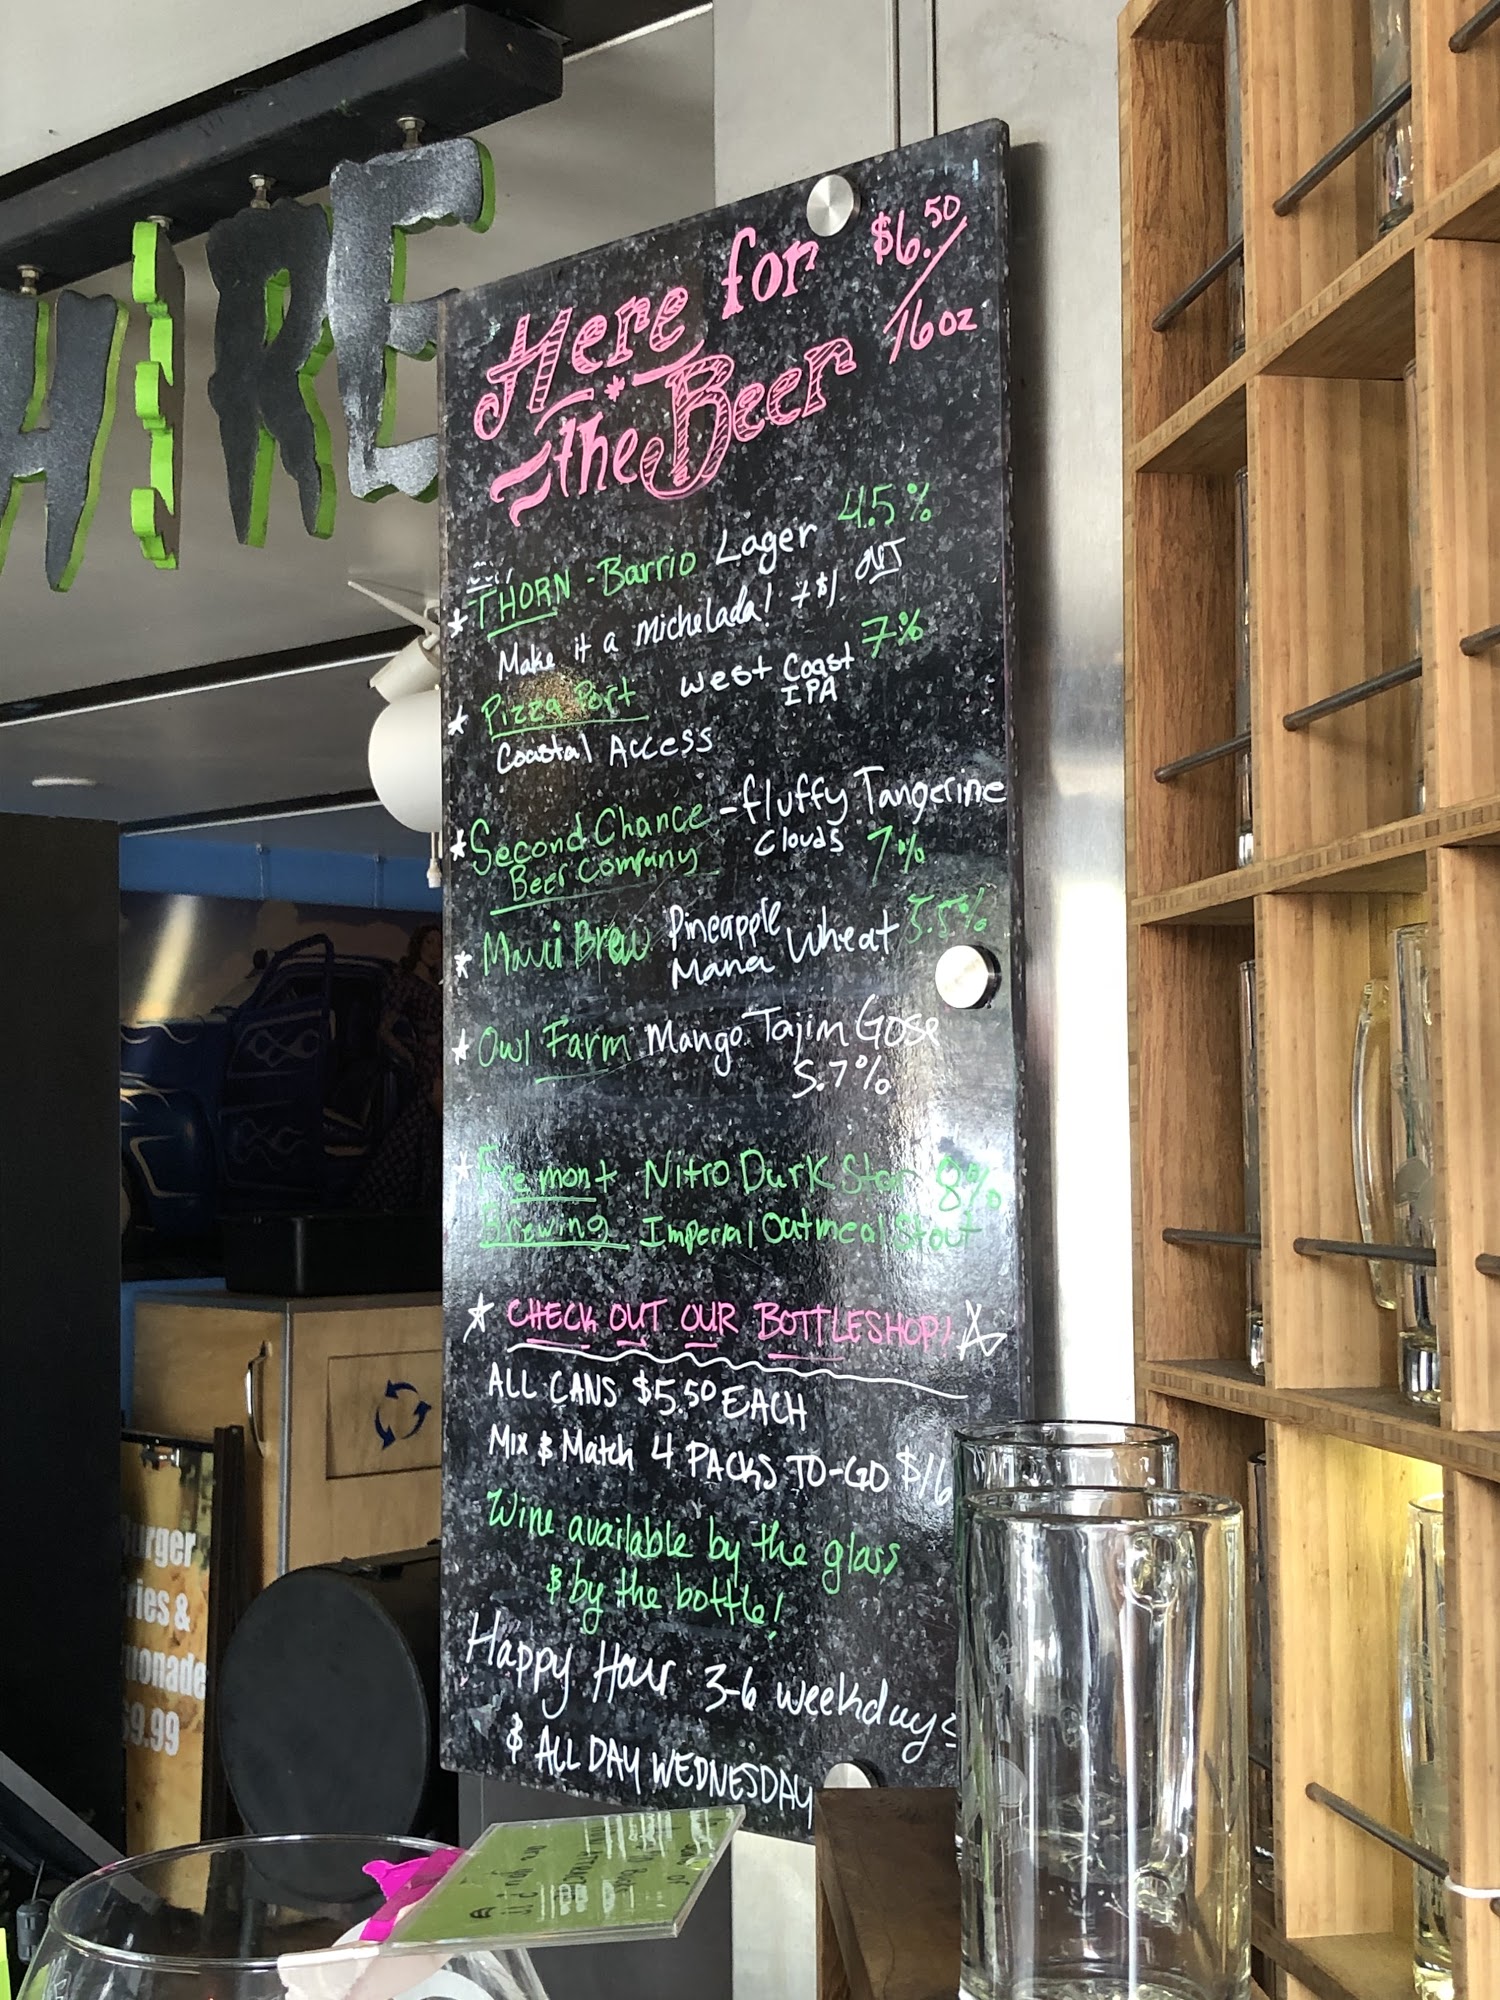 HIRE
Here for $6.50/
the Beer 16oz
THORN - Barrio Lager 4.5%
Make it a michelada! +$1. OUT
Pizza Port West Coast 7%
IPA
Coastal Access
Second Chance - Fluffy Tangerine
Beer Company Clouds 7%
Maui Brew Pineapple 5.5%
Mana Wheat
Owl Farm Mango Tajim Gose
5.7%
Fremont Nitro Dark Star 8%
Brewing Imperial Oatmeal Stout
CHECK OUT OUR BOTTLESHOP!
ALL CANS $5.50 EACH
Mix & Match 4 PACKS TO-GO $16
Wine available by the glass
& by the bottle!
Happy Hour 3-6 weekdays
& ALL DAY WEDNESDAY
urger
ries &
monade
$9.99